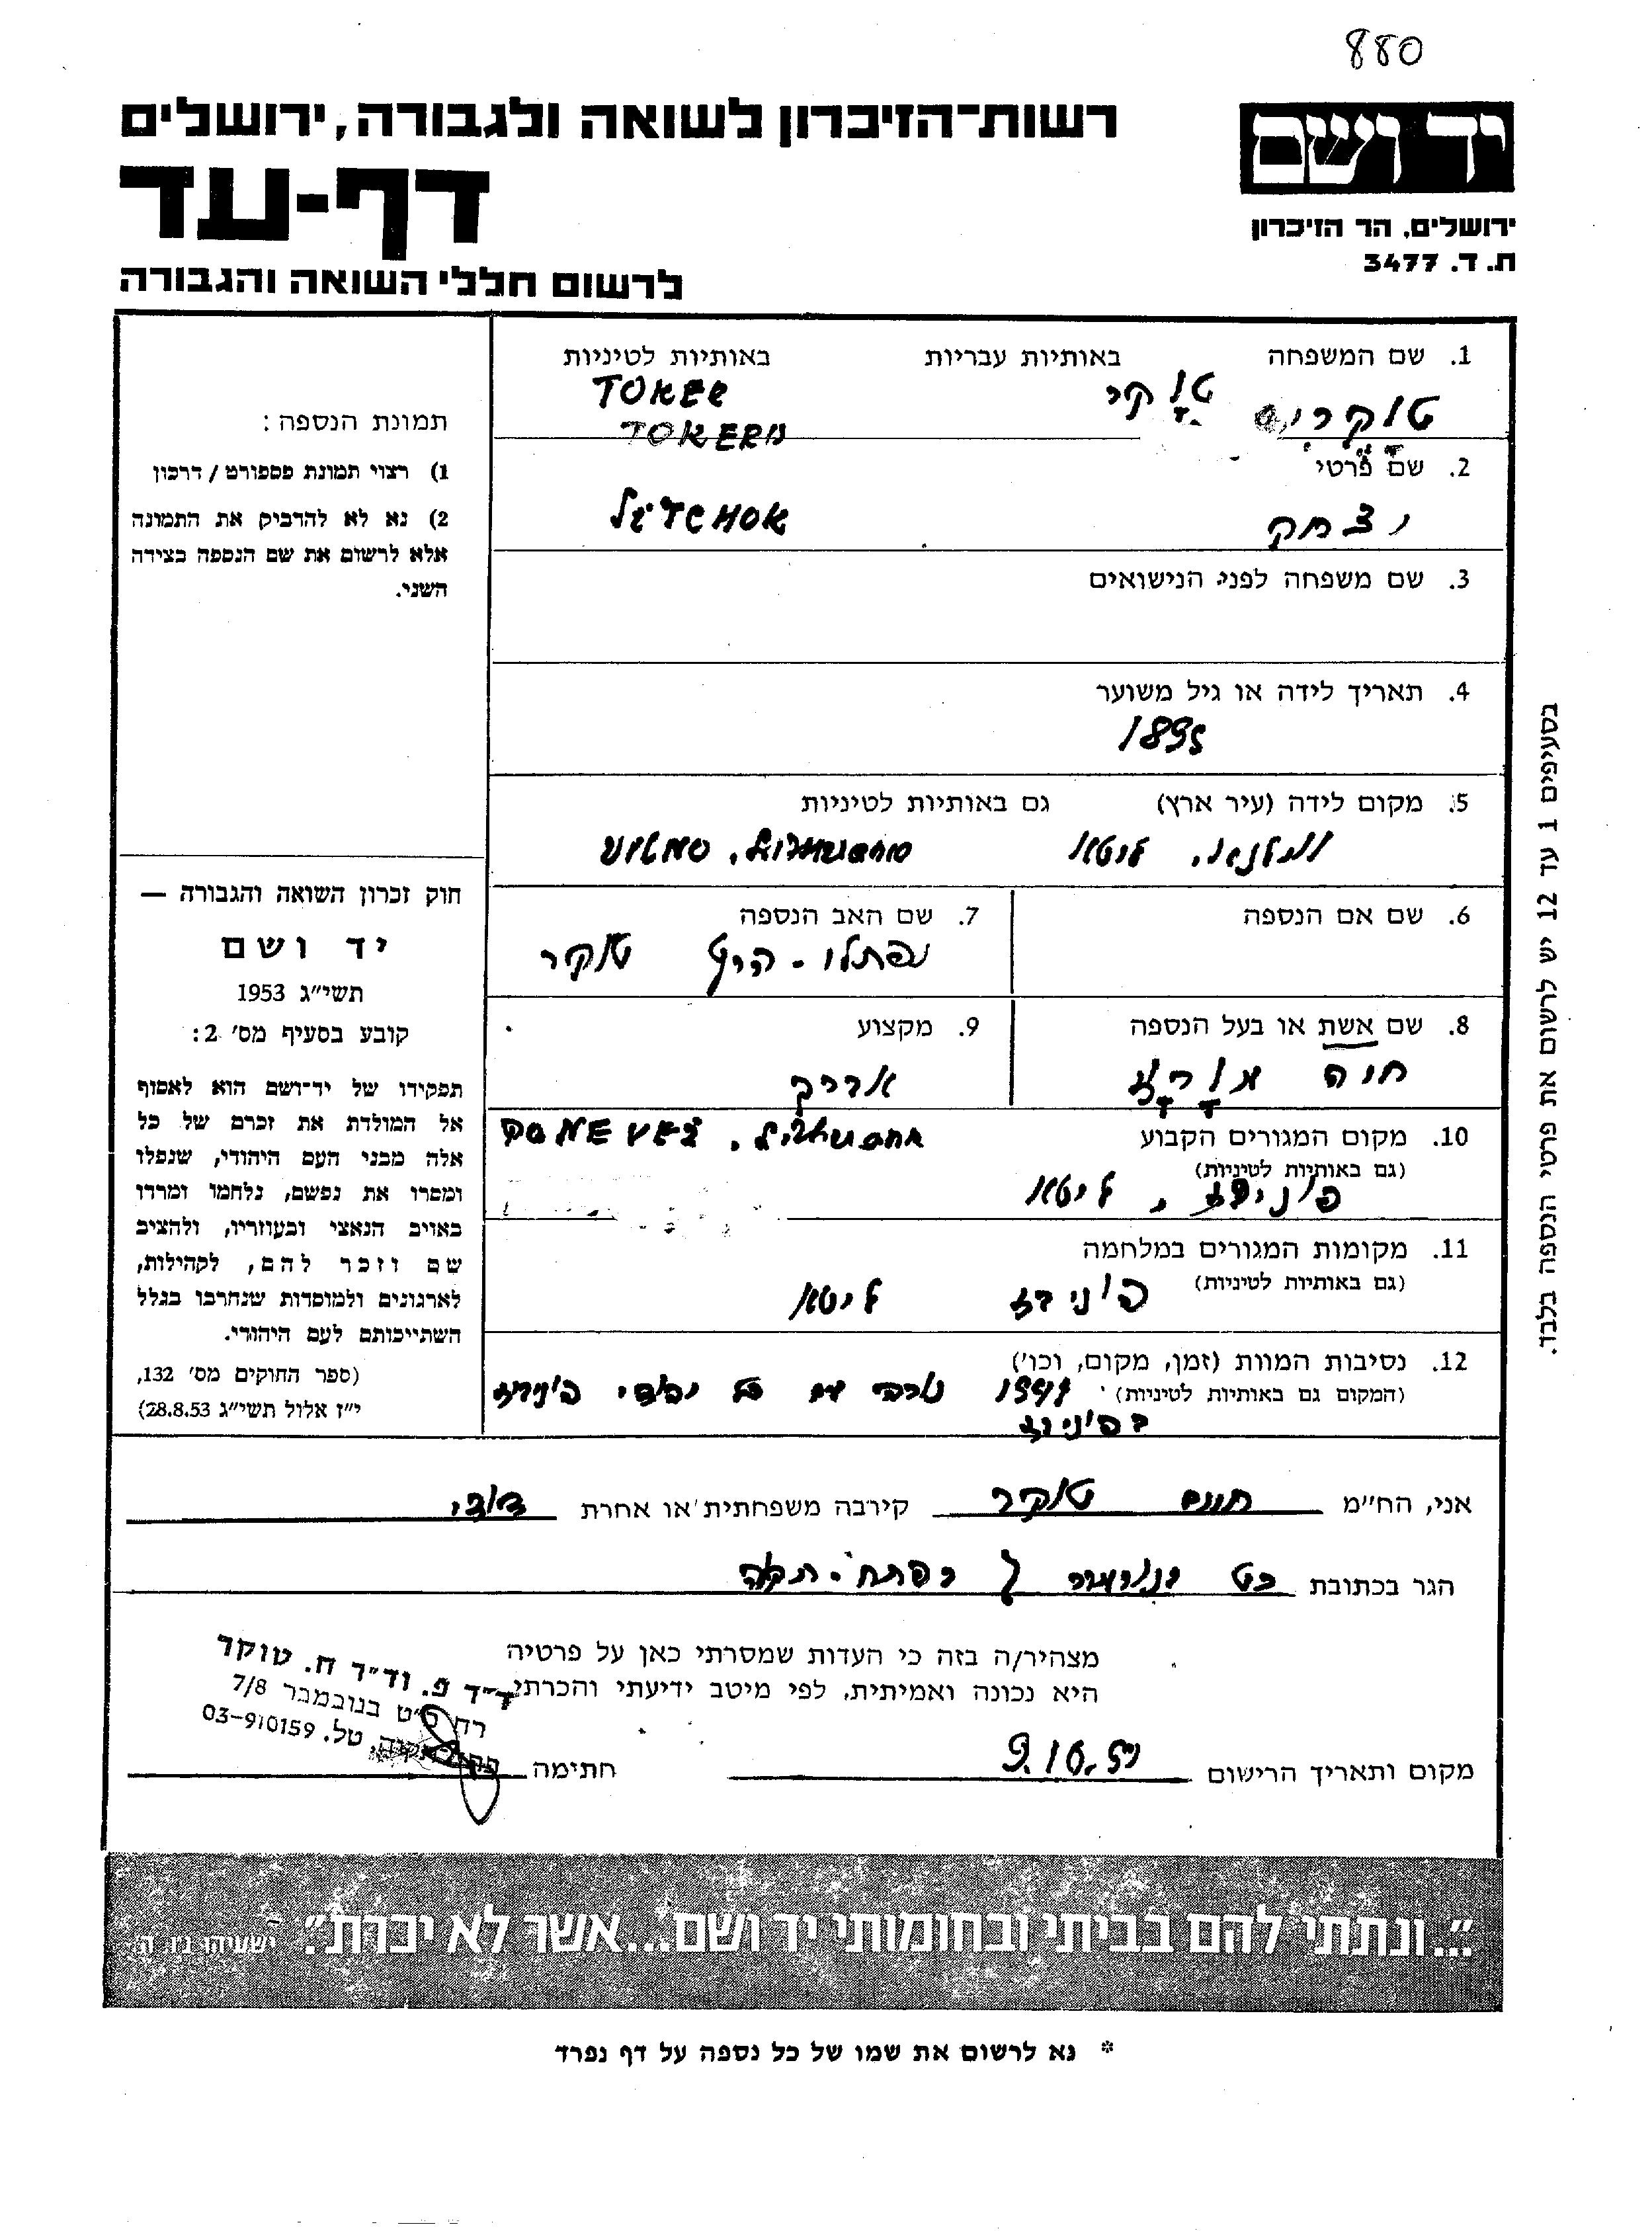 880
יד ושם
רשות־הזיכרון לשואה ולגבורה, ירושלים
דף-עד
ירושלים, הר הזיכרון
ת. ד. 3477
לרשום חללי השואה והגבורה
1. שם המשפחה באותיות עבריות באותיות לטיניות
טוקר TOKER
2. שם פרטי
יצחק
3. שם משפחה לפני הנישואים
4. תאריך לידה או גיל משוער
1895
5. מקום לידה (עיר ארץ) גם באותיות לטיניות
ליטא
6. שם אם הנספה 7. שם האב הנספה
נפתלי - הירץ טוקר
8. שם אשת או בעל הנספה 9. מקצוע
חיה
10. מקום המגורים הקבוע
(גם באותיות לטיניות)
פוניבז, ליטא
11. מקומות המגורים במלחמה
(גם באותיות לטיניות) פוניבז ליטא
12. נסיבות המוות (זמן, מקום, וכו')
(המקום גם באותיות לטיניות) 1941 נורה עם כל יהודי פוניבז
בפוניבז
תמונת הנספה:
1) רצוי תמונת פספורט / דרכון
2) נא לא להדביק את התמונה
אלא לרשום את שם הנספה בצידה
השני.
חוק זכרון השואה והגבורה —
יד ושם
תשי״ג 1953
קובע בסעיף מס׳ 2:
תפקידו של יד־ושם הוא לאסוף
אל המולדת את זכרם של כל
אלה מבני העם היהודי, שנפלו
ומסרו את נפשם, נלחמו ומרדו
באויב הנאצי ובעוזריו, ולהציב
שם וזכר להם, לקהילות,
לארגונים ולמוסדות שנחרבו בגלל
השתייכותם לעם היהודי.
(ספר החוקים מס׳ 132,
י״ז אלול תשי״ג 28.8.53)
בסעיפים 1 עד 12 יש לרשום את פרטי הנספה בלבד.
אני, הח״מ חיים טוקר קירבה משפחתית או אחרת דודי
הגר בכתובת כט בנובמבר 7 פתח-תקוה
מצהיר/ה בזה כי העדות שמסרתי כאן על פרטיה
היא נכונה ואמיתית, לפי מיטב ידיעתי והכרתי
ד״ר פ. וד״ר ח. טוקר
רח׳ כ״ט בנובמבר 7/8
פתח תקוה, טל. 03-910159
מקום ותאריך הרישום חתימה
״...ונתתי להם בביתי ובחומותי יד ושם...אשר לא יכרת״. ישעיהו נ״ו, ה׳
* נא לרשום את שמו של כל נספה על דף נפרד